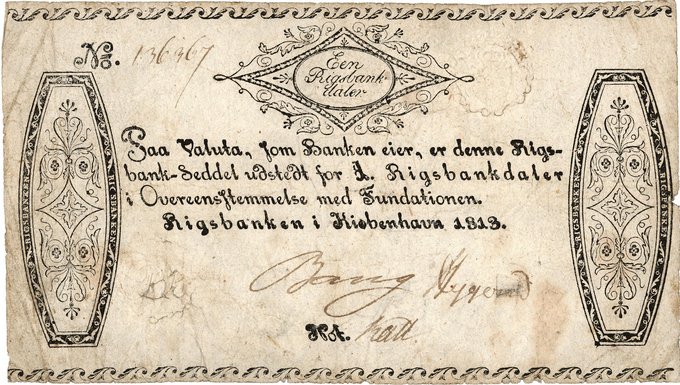 No. 136367
Een
Rigsbank-
daler
Paa Valuta, ſom Banken eier, er denne Rigs-
bank-Seddel udstedt for 1. Rigsbankdaler
i Overeensſtemmelse med Fundationen.
Rigsbanken i Kiøbenhavn 1813.
RIGSBANKEN
RIGSBANKEN
RIGSBANKEN
Bang
Not.